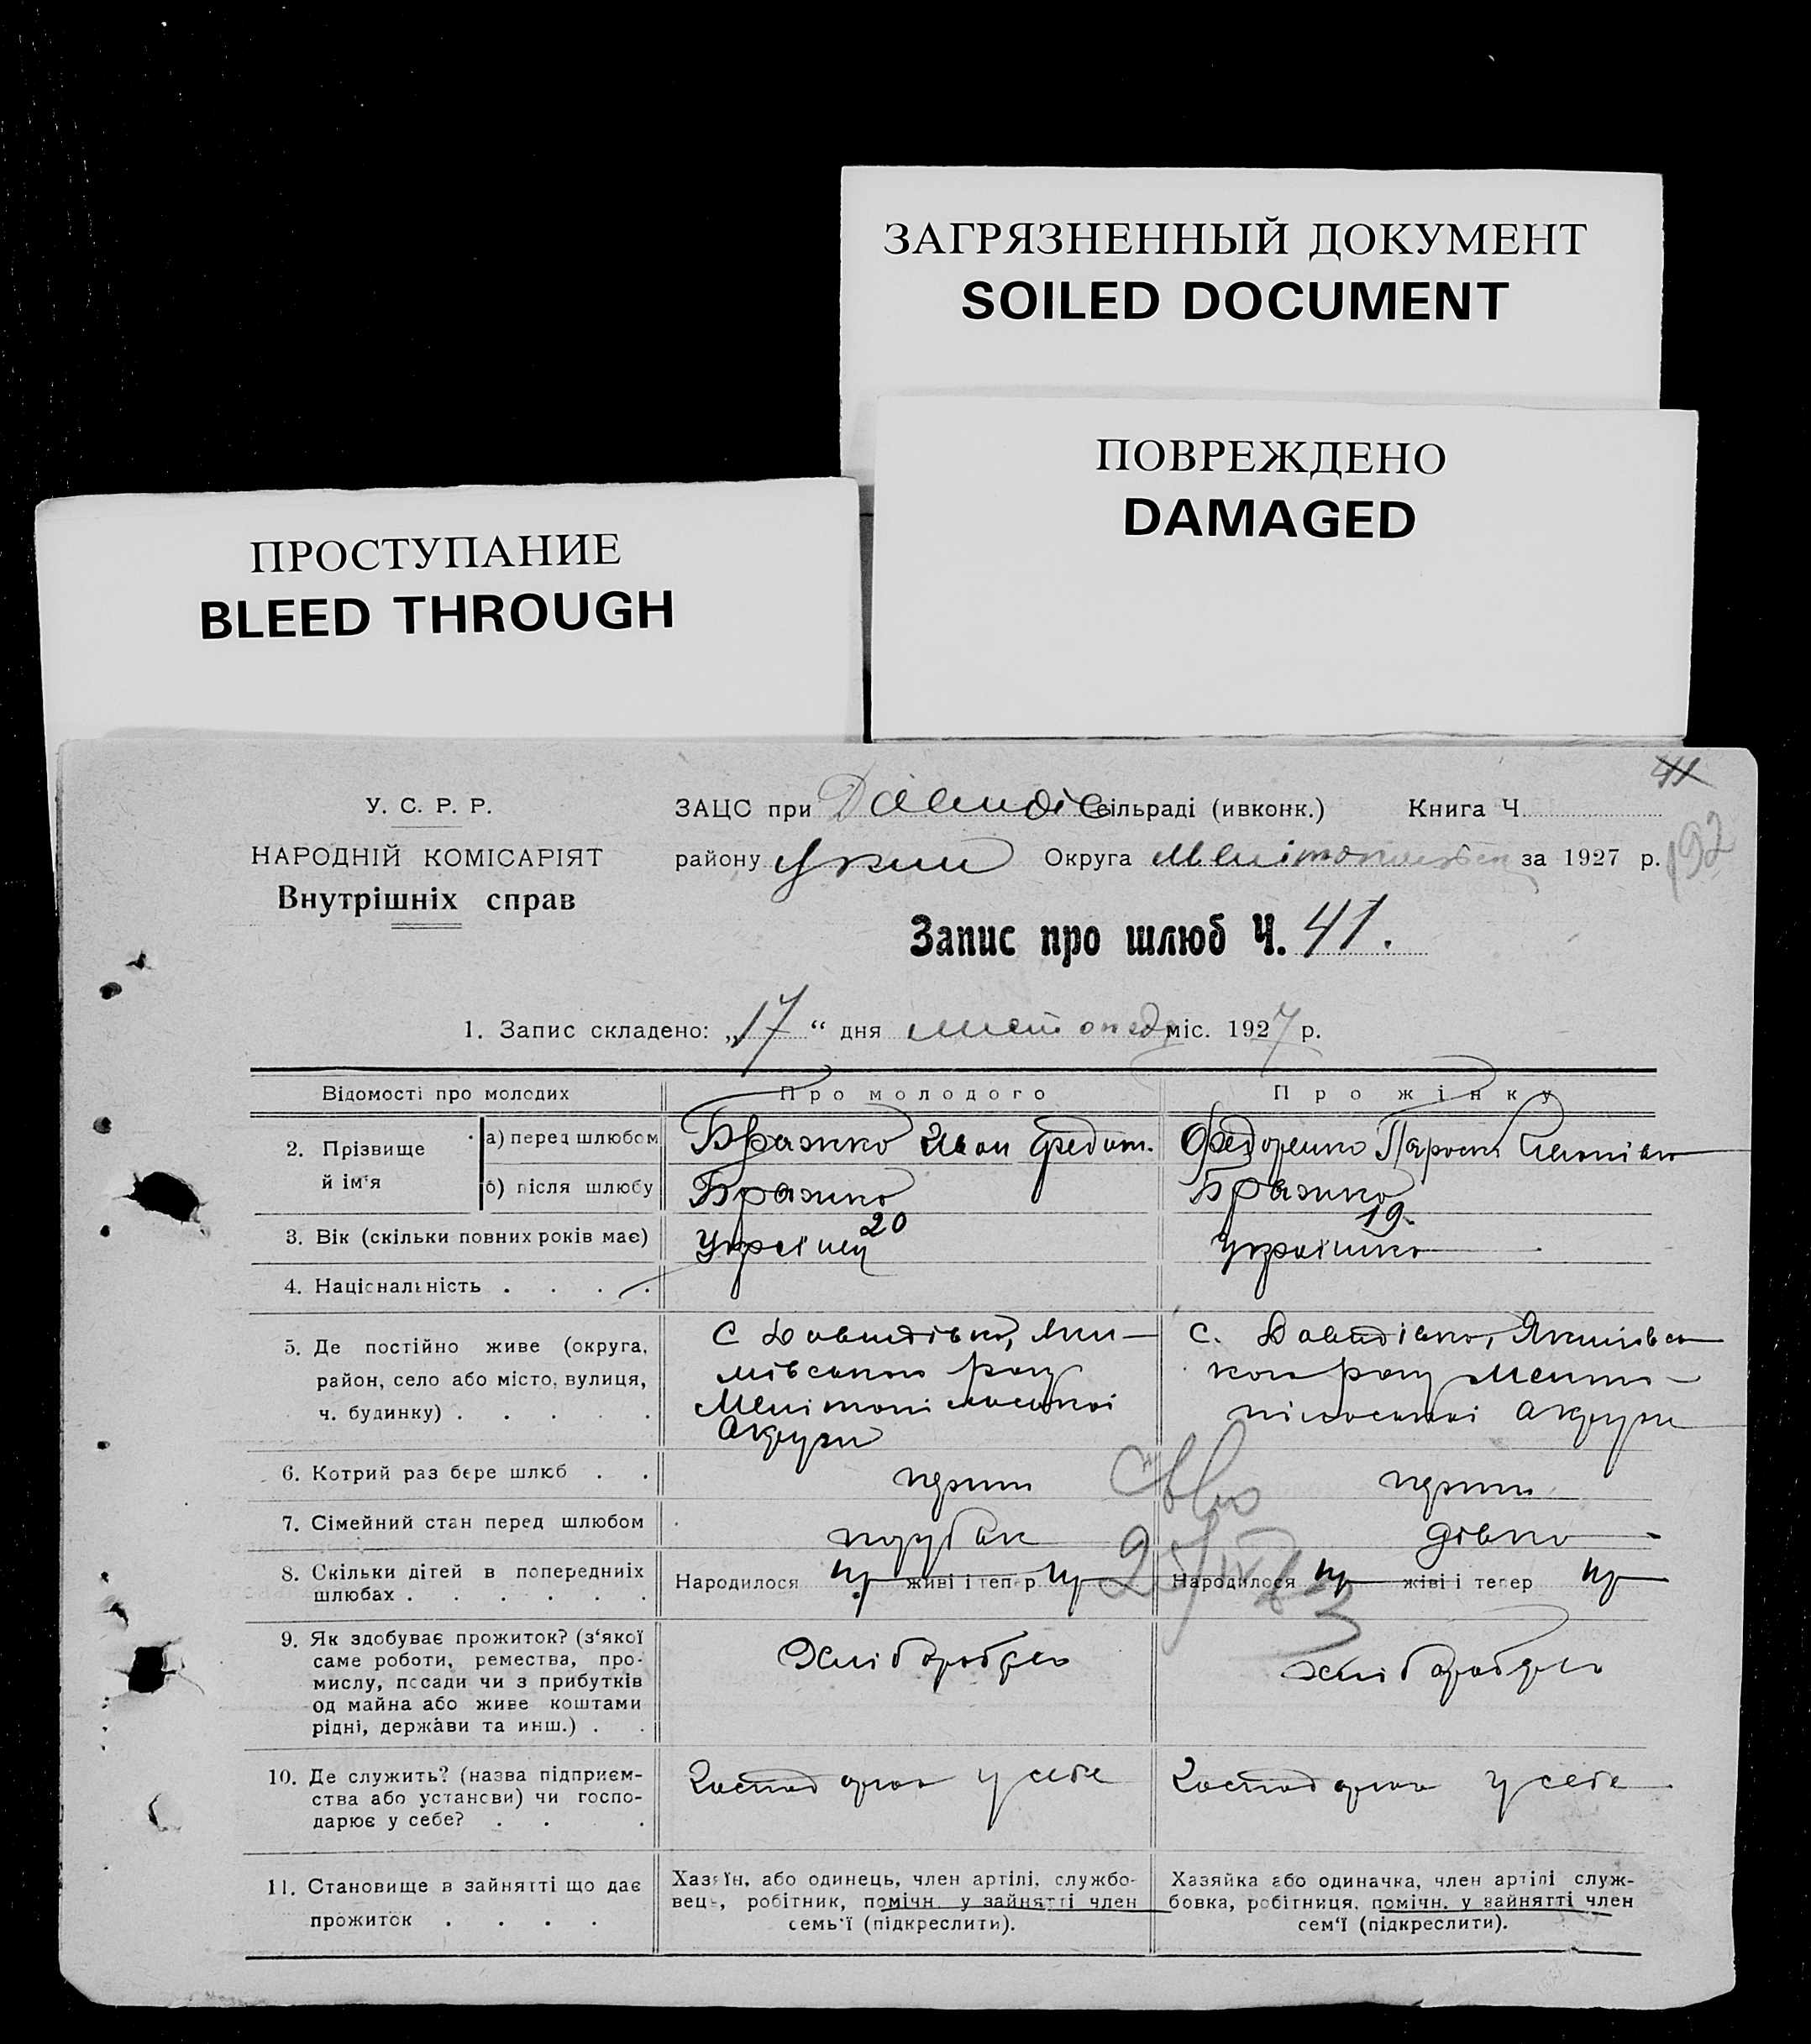 ЗАГРЯЗНЕННЫЙ ДОКУМЕНТ
SOILED DOCUMENT
ПОВРЕЖДЕНО
DAMAGED
ПРОСТУПАНИЕ
BLEED THROUGH
41
192
У. С. Р. Р.
НАРОДНІЙ КОМІСАРІЯТ
Внутрішніх справ
ЗАЦС при Давидів сільраді (ивконк.) Книга Ч.
району Округа Мелітопільськ за 1927 р.
Запис про шлюб Ч. 41.
1. Запис складено: „17“ дня листопад міс. 1927 р.
Відомості про молодих
Про молодого
Про жінку
2. Прізвище й ім'я
а) перед шлюбом
Бражко Иван Федот.
Федоренко Параск
б) після шлюбу
Бражко
Бражко
3. Вік (скільки повних років має)
20
19.
4. Національність . . . .
Українец
українка
5. Де постійно живе (округа,
район, село або місто, вулиця,
ч. будинку) . . . . .
с Давидівка, Яки-
мівського рану
Мелітопільської
Округи
с. Давидівка, Якимівсь
кого рану Мелито-
пільської Округи
6. Котрий раз бере шлюб . .
перши
перши
7. Сімейний стан перед шлюбом
парубак
дівка
8. Скільки дітей в попередніх
шлюбах . . . . . .
Народилося живі і тепер
Народилося живі і тепер
9. Як здобуває прожиток? (з'якої
саме роботи, ремества, про-
мислу, посади чи з прибутків
од майна або живе коштами
рідні, держави та инш.) . .
Хлібаробрсо
хлібаробрсо
10. Де служить? (назва підприєм-
ства або установи) чи госпо-
дарює у себе? . . .
Господарка у себе
Господарка у себе
11. Становище в зайнятті що дає
прожиток . . . .
Хазяїн, або одинець, член артілі, службо-
вець, робітник, помічн. у зайнятті член
семь'ї (підкреслити).
Хазяйка або одиначка, член артілі служ-
бовка, робітниця, помічн. у зайнятті член
сем'ї (підкреслити).